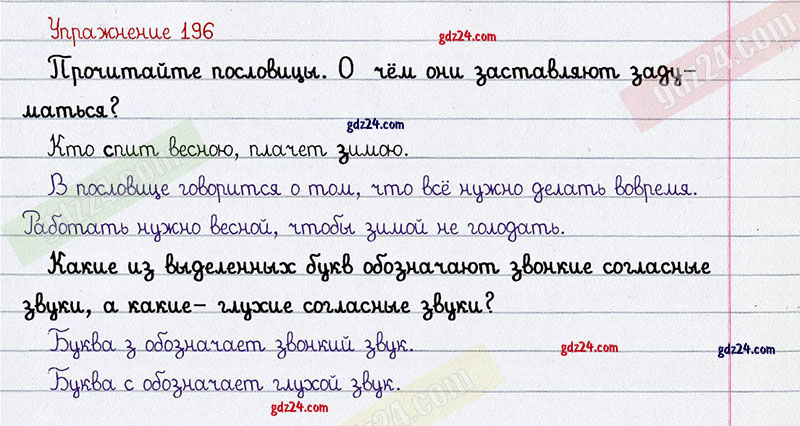 Упражнение 196
gdz24.com
Прочитайте пословицы. О чём они заставляют заду-
маться?
gdz24.com
Кто спит весною, плачет зимою.
В пословице говорится о том, что всё нужно делать вовремя.
Работать нужно весной, чтобы зимой не голодать.
Какие из выделенных букв обозначают звонкие согласные
звуки, а какие- глухие согласные звуки?
Буква з обозначает звонкий звук.
gdz24.com
gdz24.com
Буква с обозначает глухой звук.
gdz24.com
gdz24.com
gdz24.com